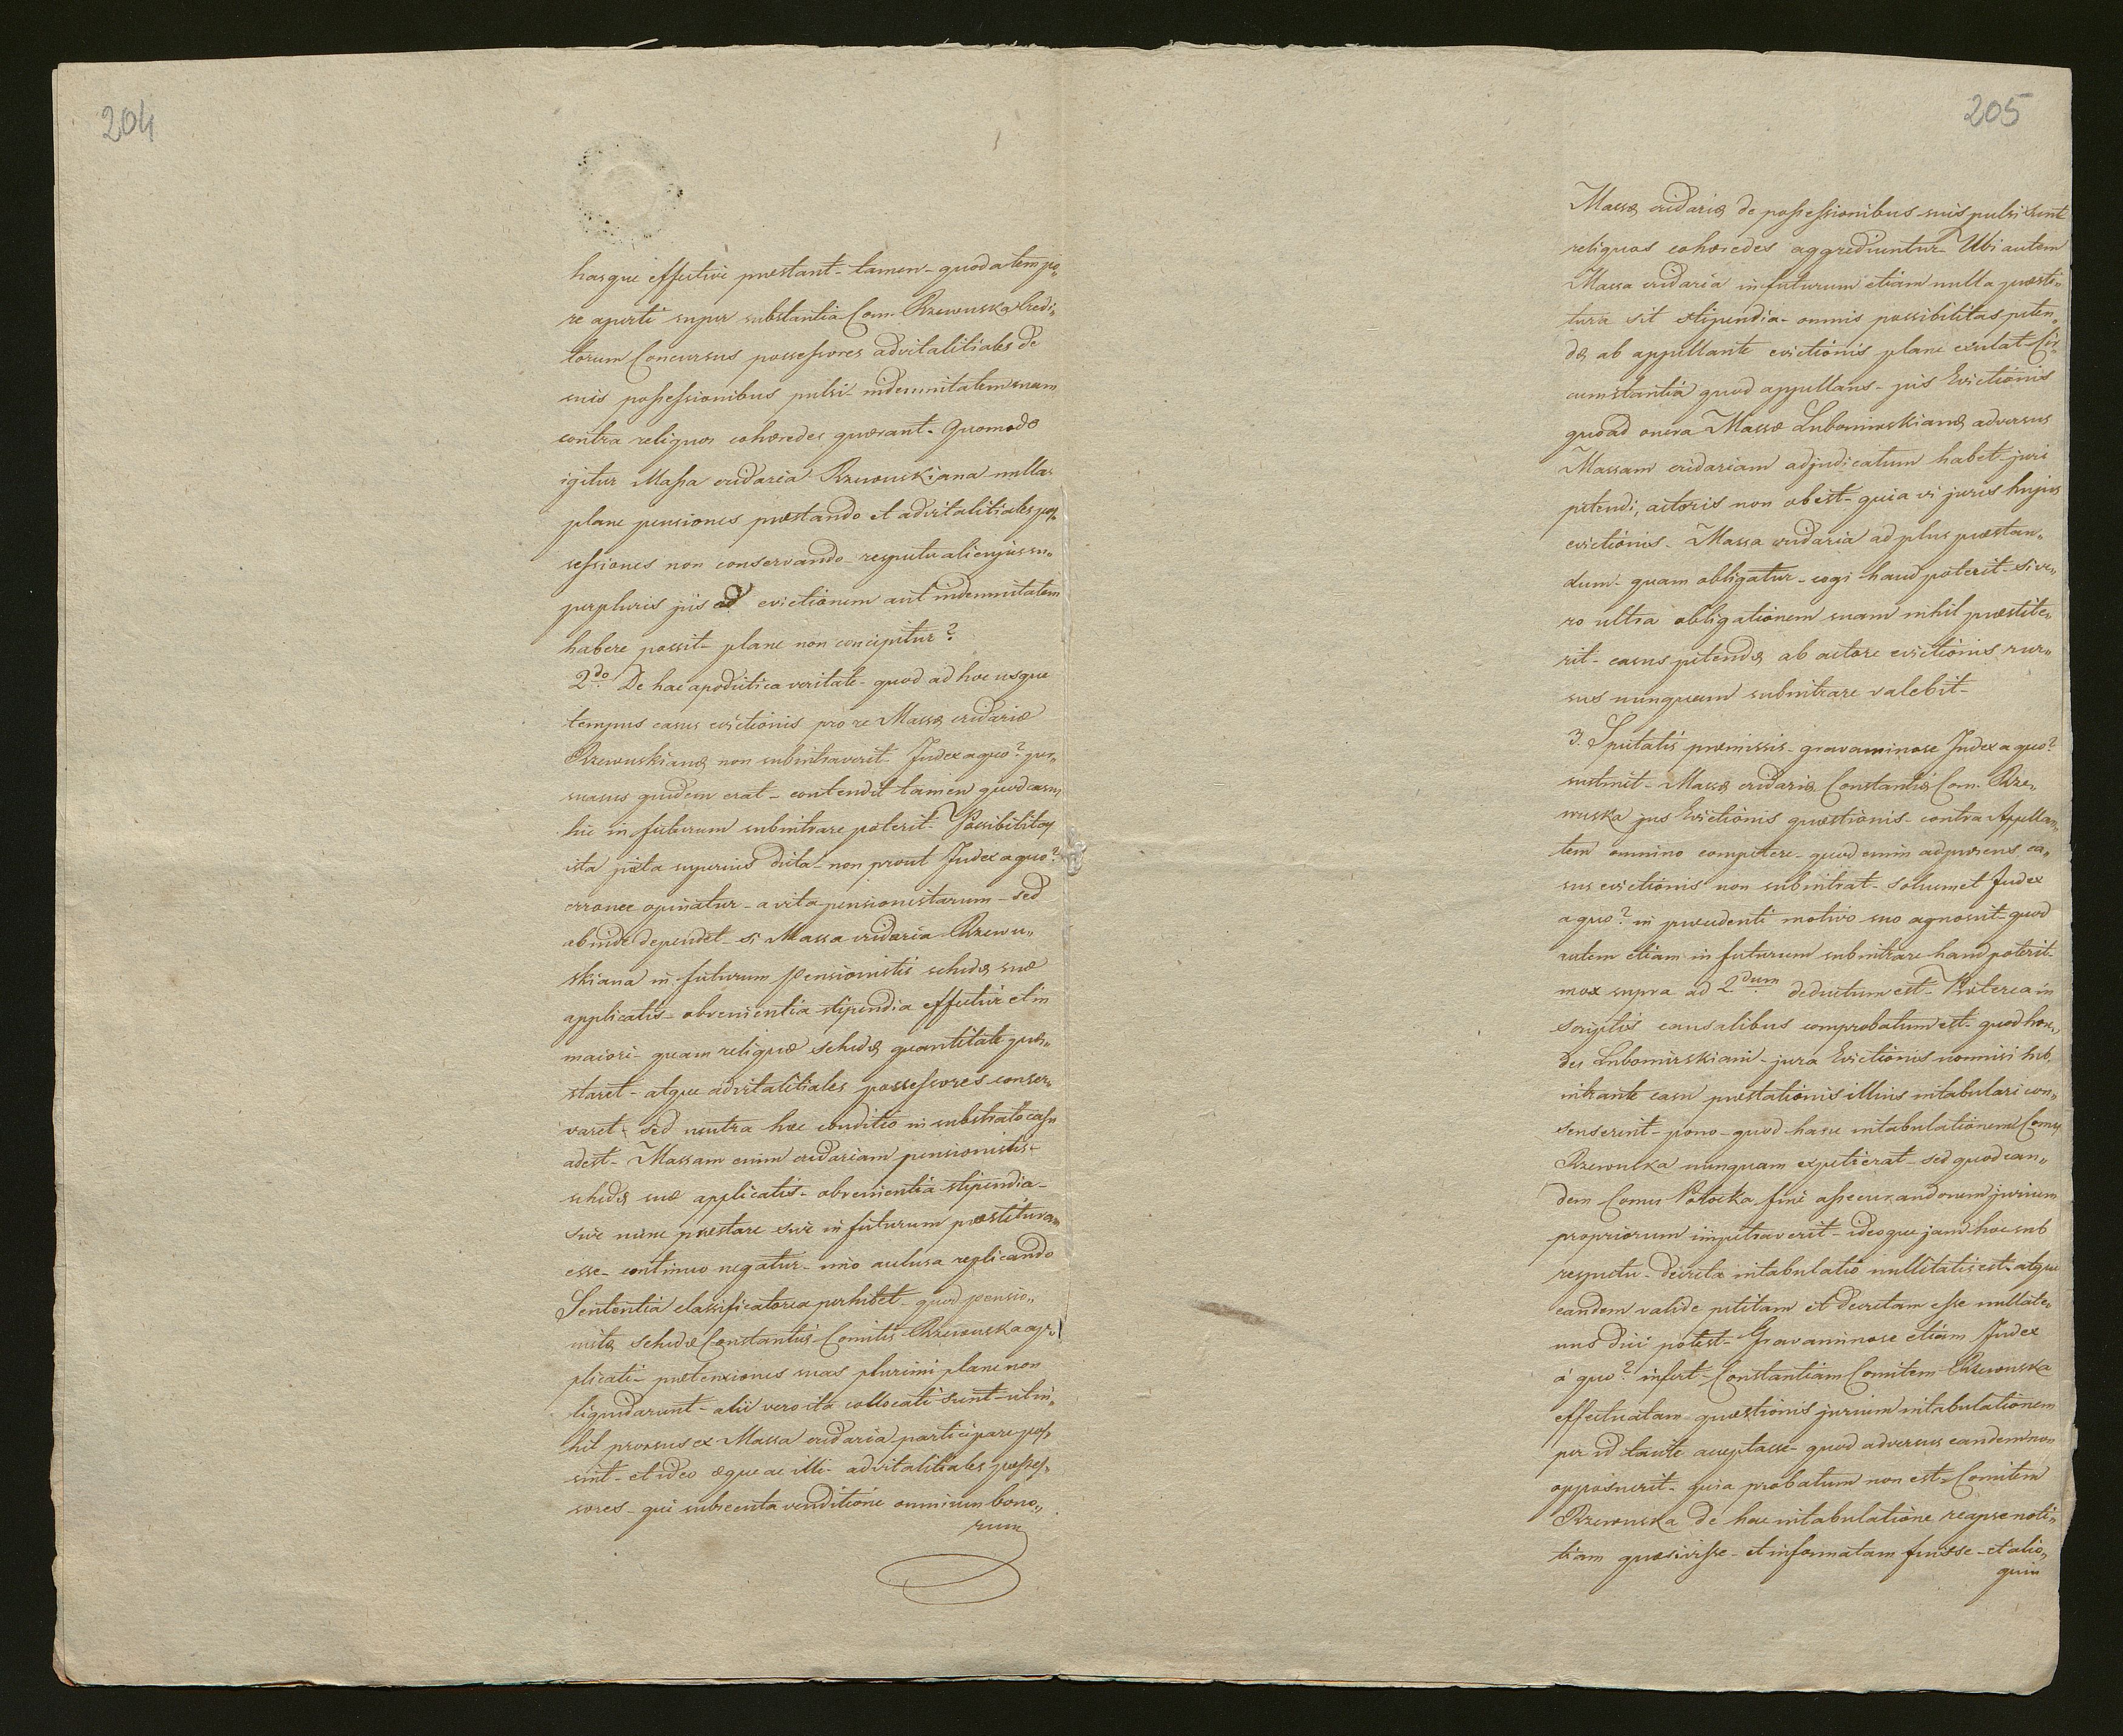 204
hasque effective præstant - tamen - quod a tempo„
re aperti super substantia Com. Rzewuska Credi„
torum Concursus possessores advitalitiales de
suis possessionibus pulsi - indemnitatem suam
contra reliquos cohæredes quærant. Quomodo
igitur Massa cridaria Rzewuskiana nullas
plane pensiones præstando et advitalitiales pos„
sessiones non conservando - respectu alicujus su„
perpluris jus ad evictionem aut indemnitatem
habere possit - plane non concipitur?
2do De hac apodictica veritate - quod ad hoc usque
tempus casus evictionis pro re Massæ cridariæ
Rzewuskianæ non subintraverit Judex a quo? per„
suasus quidem erat - contendit tamen quod casus
hic in futurum subintrare poterit - Possibilitas
ista juxta superius dicta - non prout Judex a quo?
erronee opinatur - a vita pensionistarum - sed
ab inde dependet - si Massa cridaria Rzewu„
skiana in futurum Pensionistis schedæ suæ
applicatis - obvenientia stipendia effective et in
maiori - quam reliquæ schedæ quantitate præ„
staret - atque advitalitiales possessores conser„
varet - sed neutra hæc conditio in substrato casu
adest - Massam enim cridariam pensionistis -
schedæ suæ applicatis - obvenientia stipendia -
sive nunc præstare sive in futurum præstituram
esse - continuo negatur - imo aclusa replicando
Sententia classificatoria perhibet - quod pensio„
nistæ schedæ Constantiæ Comitis Rzewuska ap„
plicati - prætensiones suas plurimi plane non
liquidarunt - alii vero ita collocati sunt - ut ni„
hil prorsus ex Massa cridaria participare pos„
sint - et ideo æque ac illi - advitalitiales posses„
sores - qui subsecuta venditione omnium bono„
rum
205
Massæ cridariæ de possessionibus suis pulsi sunt
reliquos cohæredes aggrediuntur - Ubi autem
Massa cridaria in futurum etiam nulla præsti„
tura sit stipendia - omnis possibilitas peten„
dæ ab appellante evictionis plane exulat - Cir„
cumstantia quod appellans - jus Evictionis
quoad onera Massæ Lubomirskianæ adversus
Massam cridariam adjudicatum habet - juri
petendi, actoris non obest - quia vi juris hujus
evictionis - Massa cridaria ad plus præstan„
dum - quam obligatur - cogi haud poterit - si ve„
ro ultra obligationem suam nihil præstite„
rit - casus petendæ ab actore evictionis rur„
sus nunquam subintrare valebit -
3. Spectatis præmissis - gravaminose Judex a quo?
sustinet - Massæ cridariæ Constantiæ Com. Rze„
wuska jus Evictionis quæstionis - contra Appellan„
tem omnino competere - quod enim ad præsens ca„
sus evictionis non subintrat - solummet Judex
a quo? in præcedenti motivo suo agnoscit - quod
autem etiam in futurum subintrare haud poterit -
mox supra ad 2dum deductum est - Præterea in
scriptis causalibus comprobatum est - quod hære„
des Lubomirskiani - jura Evictionis nonnisi sub„
intrante casu præstationis illius intabulari con„
senserint - pono - quod hanc intabulationem Comes
Rzewuska nunquam expetierat - sed quod ean„
dem Comes Potocka fine assecurandorum jurium
propriorum impetraverit - ideoque jam hoc sub
respectu - decreta intabulatio nullitatis est - atque
eandem valide petitam et decretam esse nullate„
nus dici potest - Gravaminose etiam Judex
a quo? infert - Constantiam Comitem Rzewuska
effectuatam quæstionis jurium intabulationem
per id tacite acceptasse - quod adversus eandem non
opposuerit - quia probatum non est - Comitem
Rzewuska de hac intabulatione reapse noti„
tiam quæsivisse - et informatam fuisse - et alio„
quin